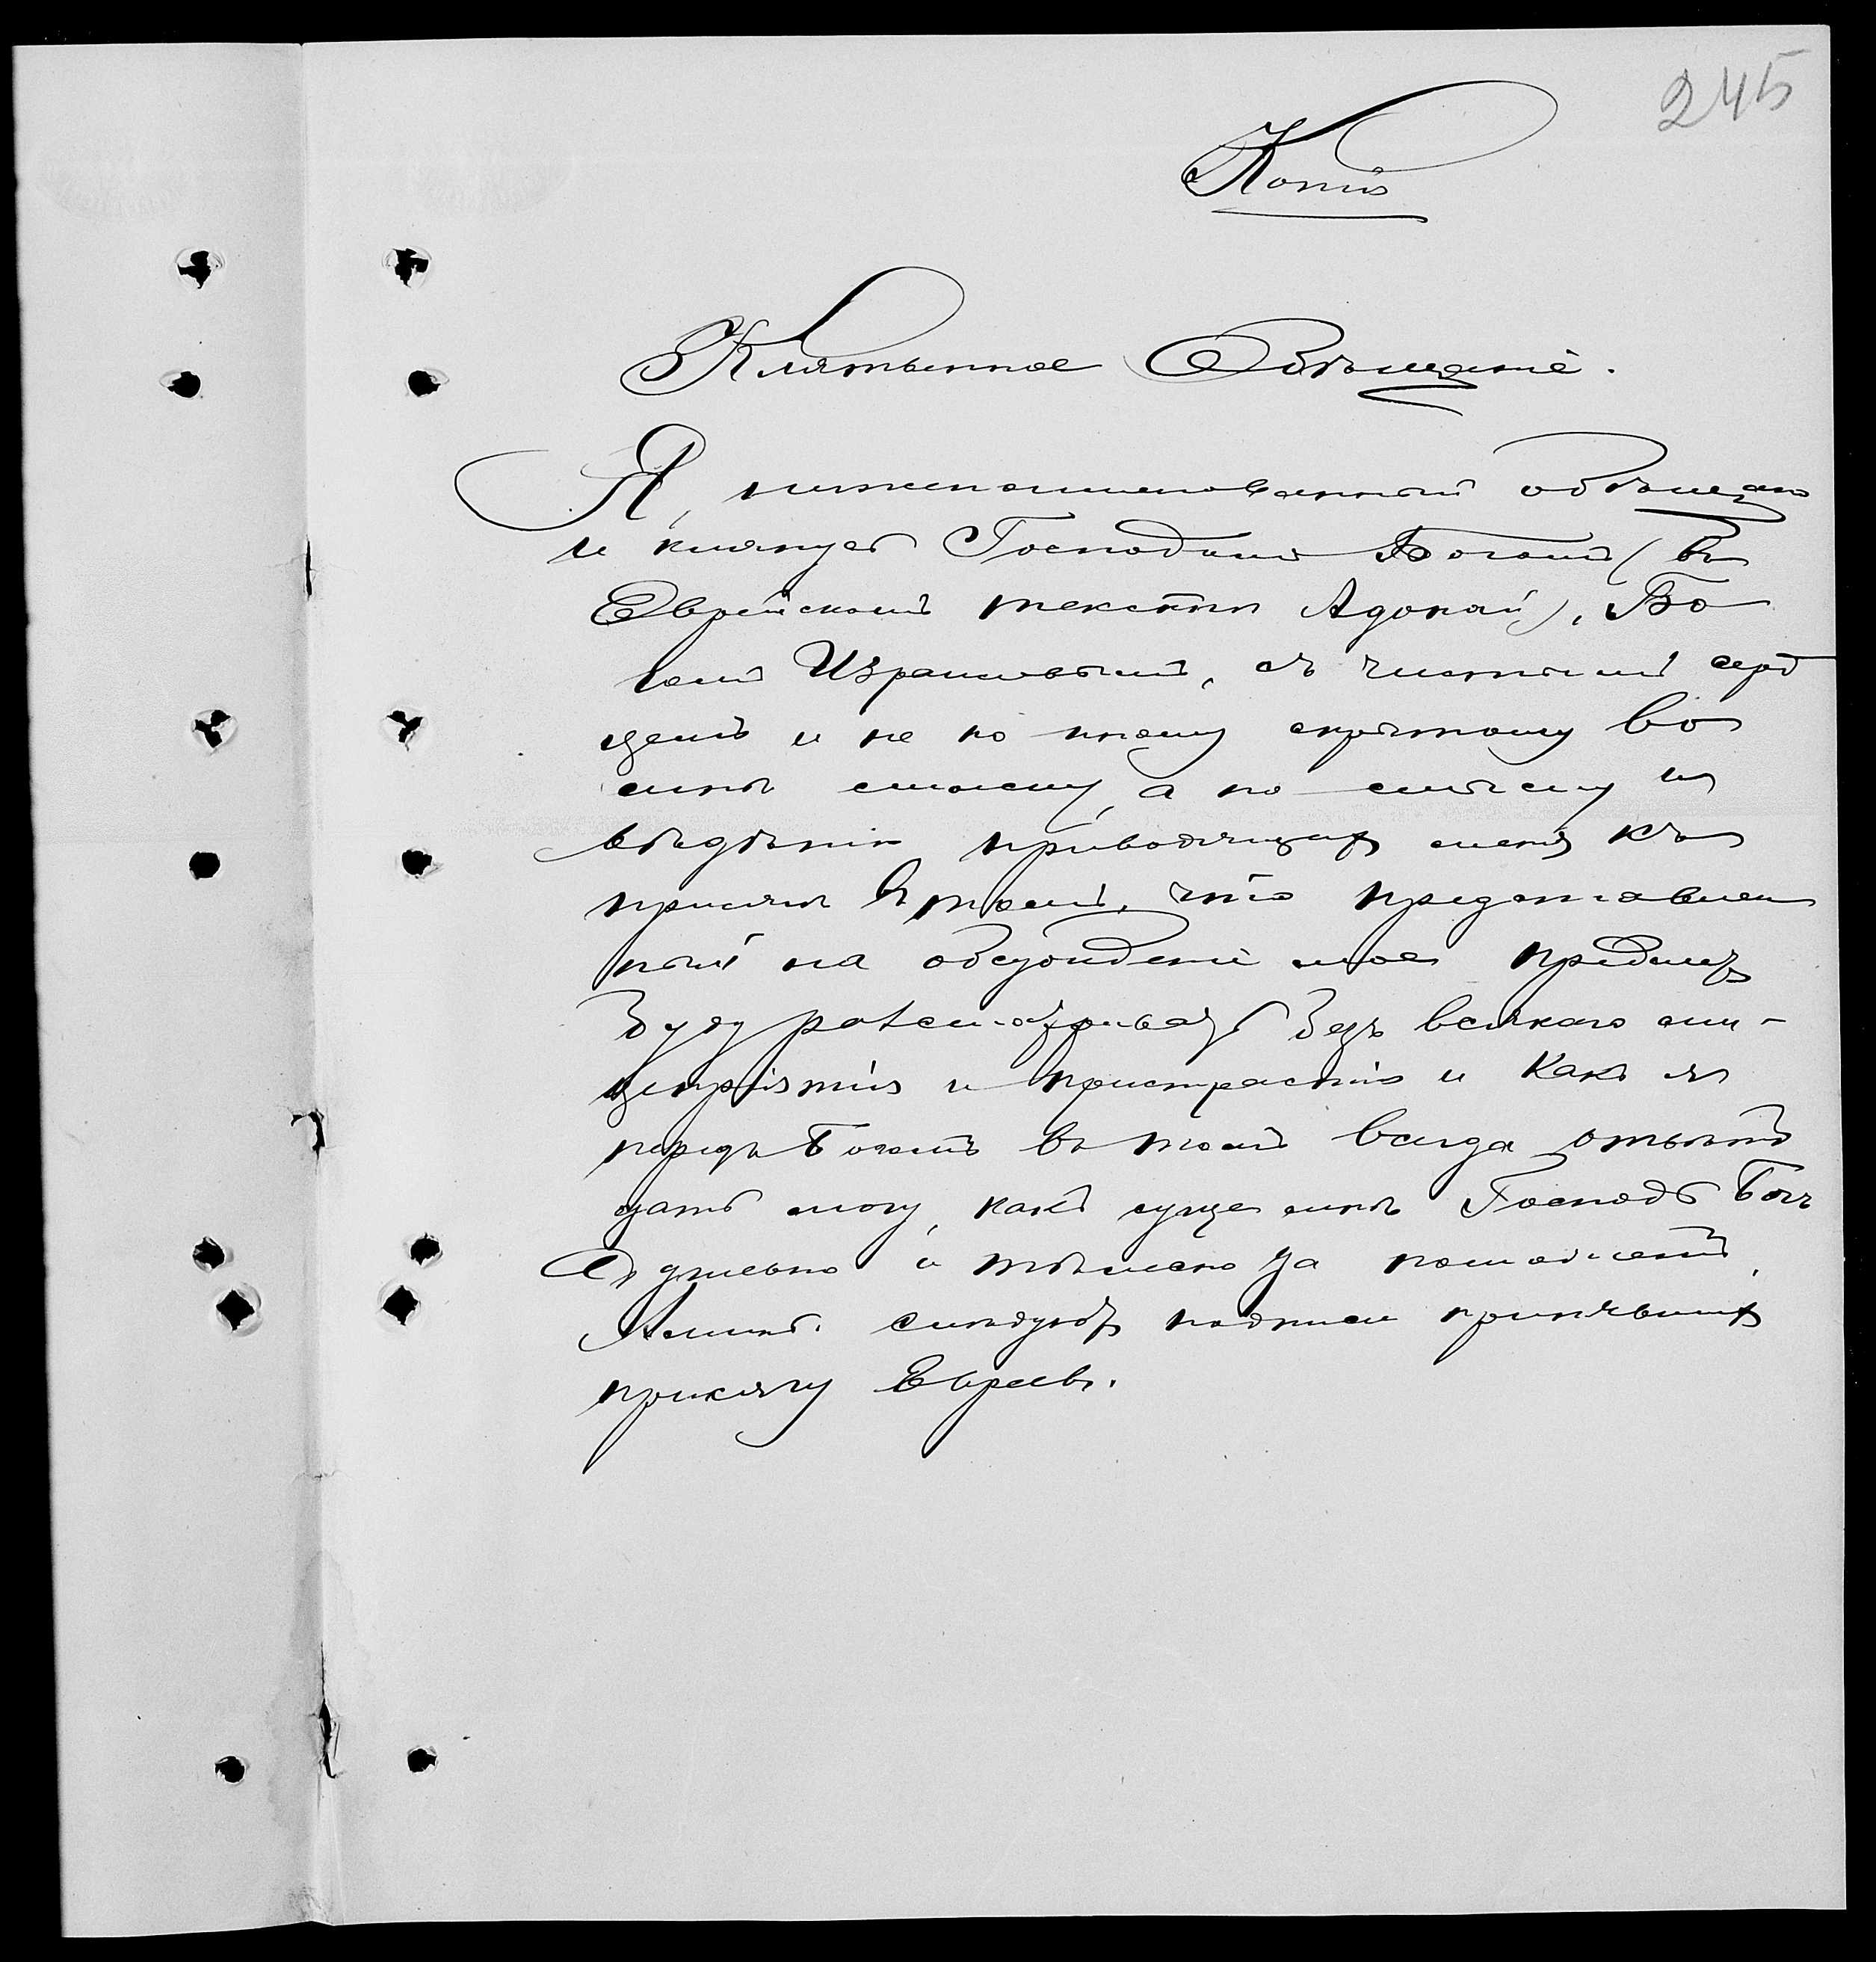 245
Копія
Клятвенное Обѣщаніе.
Я, нижепоименованный обѣщаю
и клянусь Господомъ Богомъ (въ
Еврейскомъ текстѣ Адонай), Бо
гомъ Израилевымъ, съ чистымъ серд
цемъ и не по иному скрытому во
мнѣ смыслу, а по смыслу и
вѣдѣнію приводящихъ меня къ
присягѣ въ томъ, что предоставлен
ный на обсужденіе мое предметъ
буду разсматривать безъ всякаго ли-
цепріятія и пристрастія и какъ я
передъ Богомъ въ томъ всегда отвѣтъ
дать могу, какъ суще мнѣ Господь Богъ
душевно и тѣлесно да поможетъ.
Аминь. Слѣдуютъ подписи принявшихъ
присягу Евреевъ.